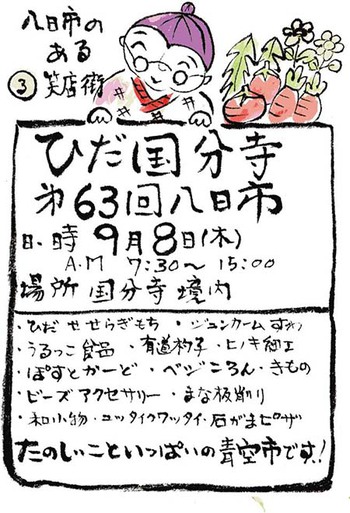 八日市の
ある
③ 笑店街
ひだ国分寺
第63回八日市
日時 9月8日(木)
A.M 7:30～15:00
場所 国分寺境内
・ひだ せせらぎもち ・ジュンクーム
・うるっこ食品 ・有道杓子・ヒノキ細工
・ぽすとかーど・ベジころん・きもの
・ビーズアクセサリー・まな板削り
・和小物・コッタイクワッタイ・石がまピザ
たのしいこといっぱいの青空市です!